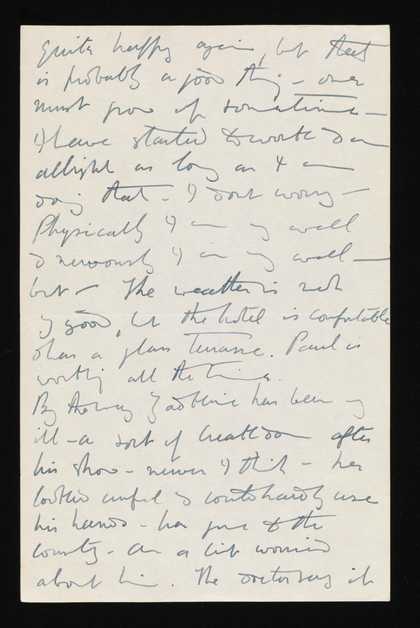 quite happy again, but that
is probably a good thing - one
must grow up sometime -
I have started to work & am
allright as long as I am
doing that - I dont worry -
Physically I am vy well
& nervously I am vy well -
but - The weather is not
vy good, but the hotel is comfortable
& has a glass terrasse. Paul is
working all the time.
By the way has been vy
ill - a sort of breakdown after
his show - nerves I think - he
looked awful & could hardly use
his hands - has gone to the
country - am a bit worried
about him. The doctor says it